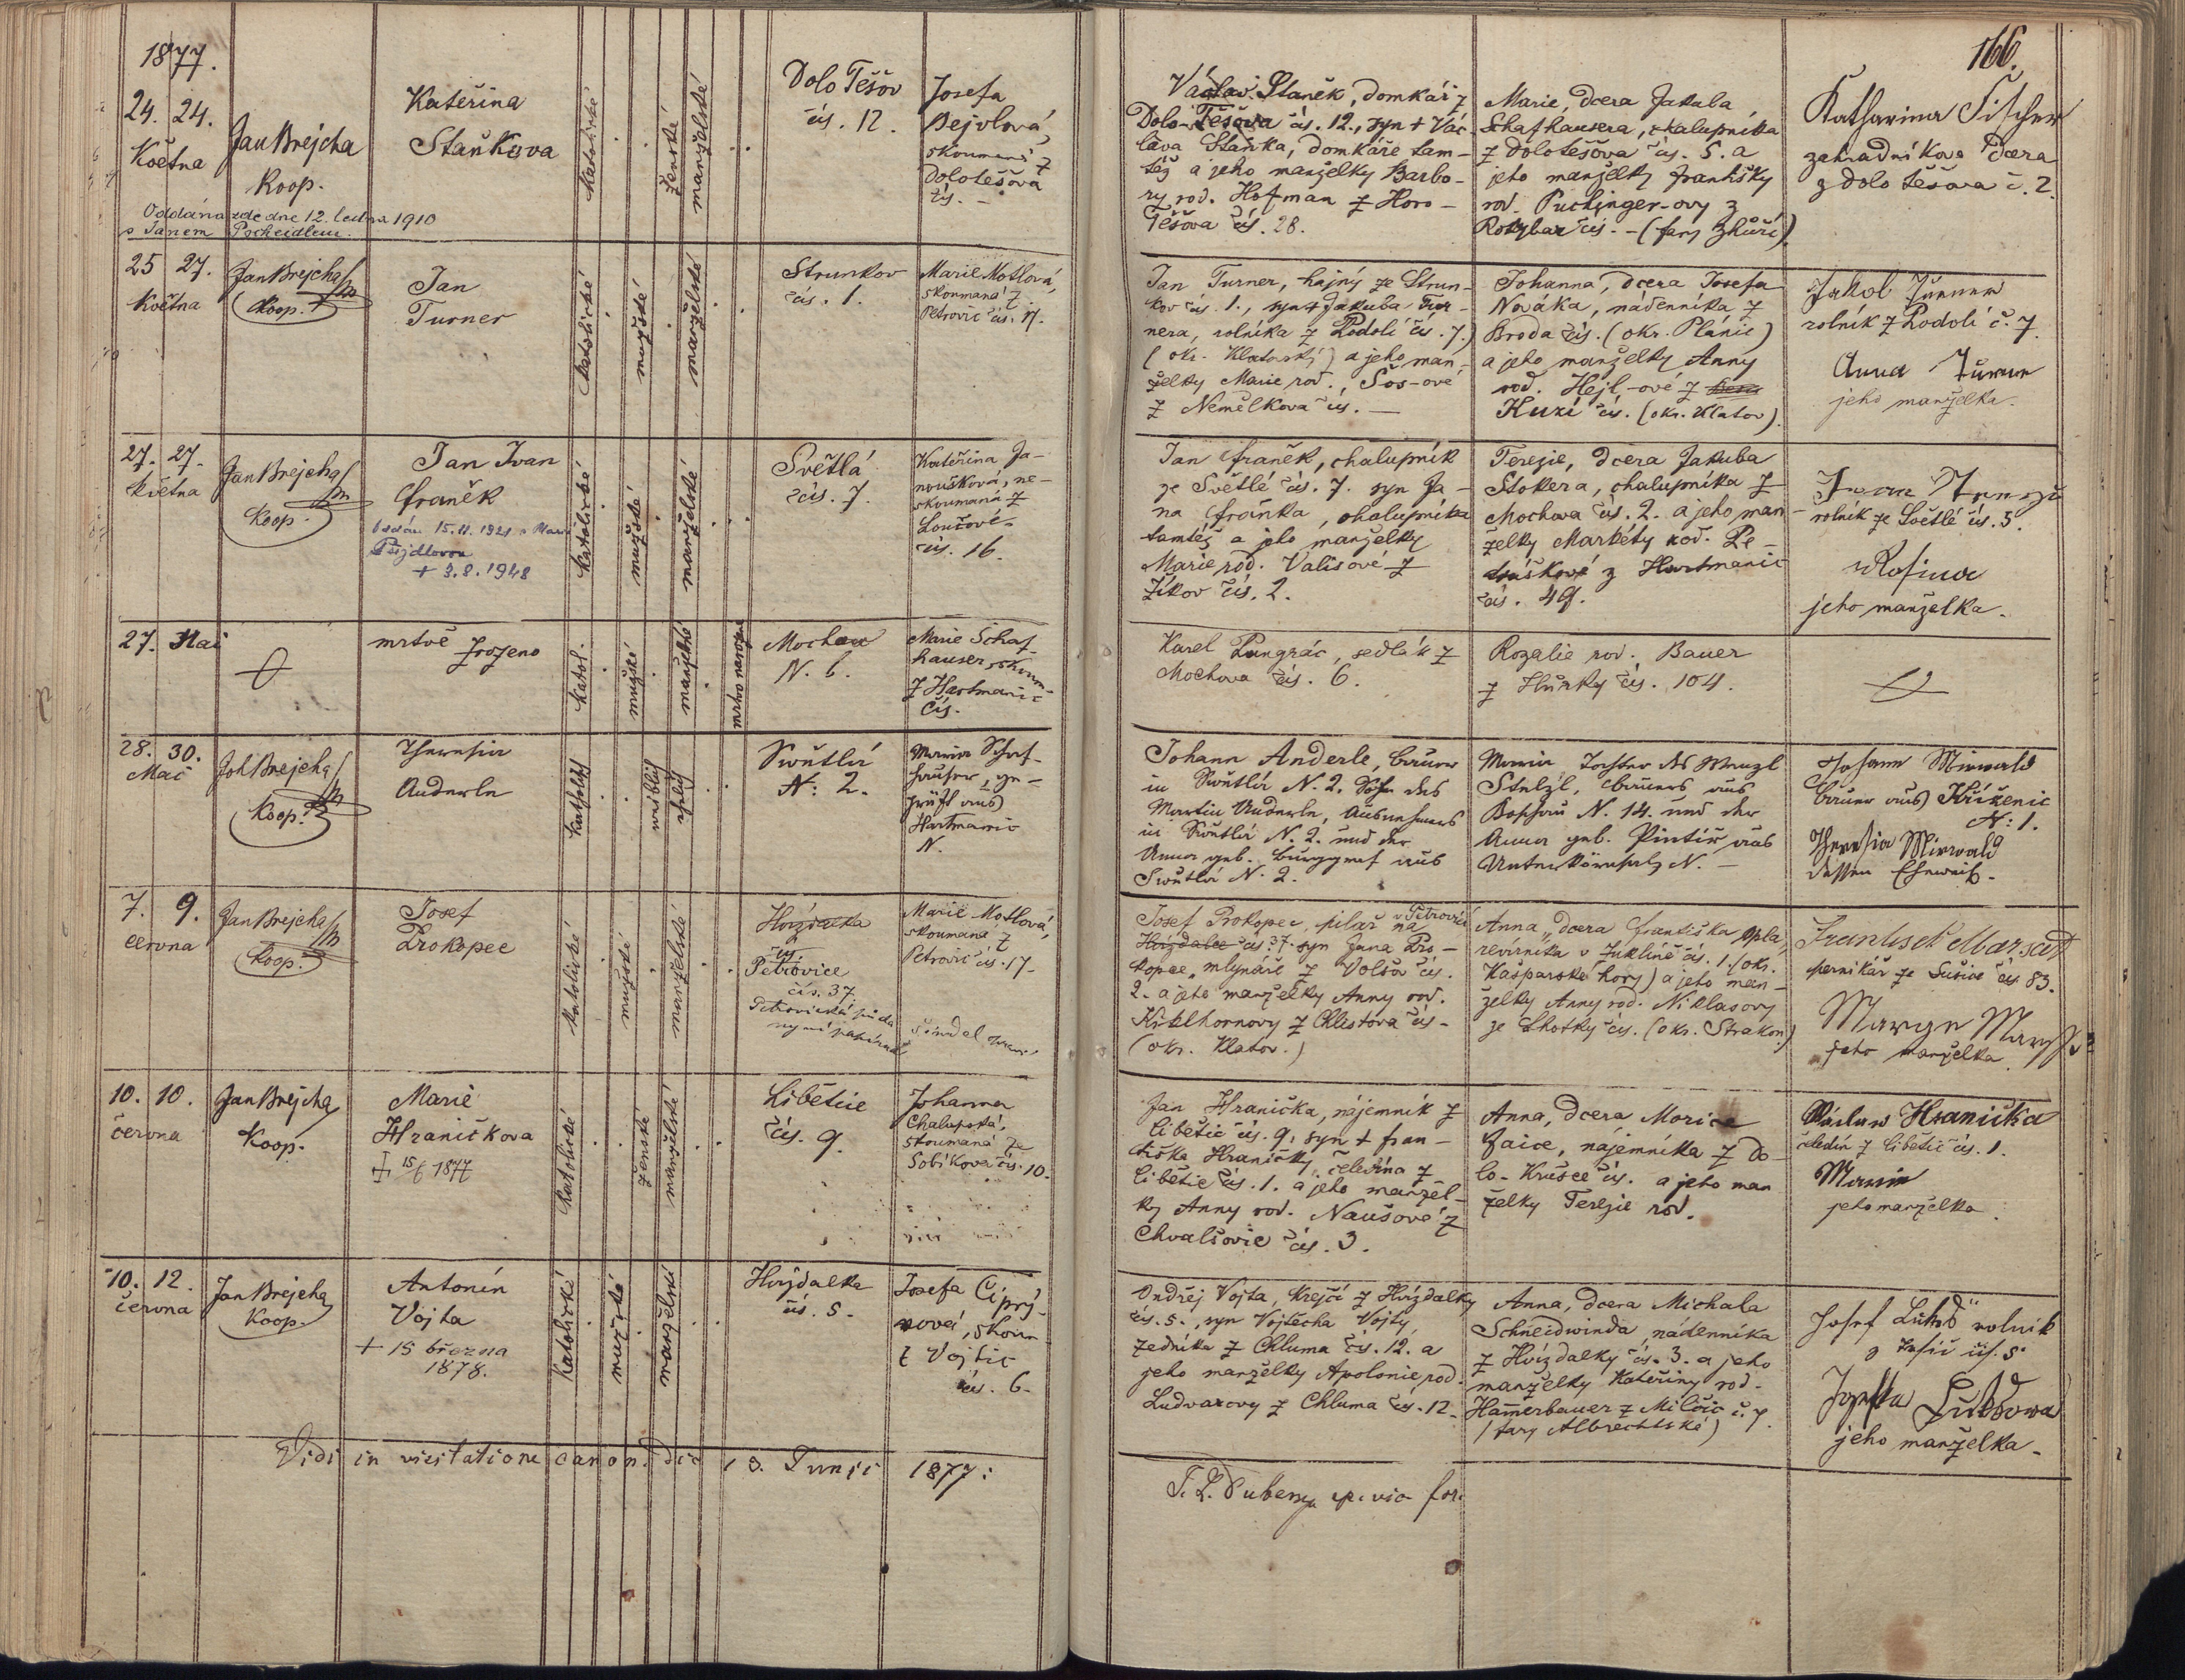 1877.
166.
24. 24.
Května
Jan Brejcha
Koop.
Kateřina
Staňkova
Oddána zde dne 12. ledna 1910
s Janem Pscheidlem.
katolické
ženské
manželské
Dolo Těšov
čís. 12.
Josefa
Bejvlová,
skoumená z
Dolotěšova
čís. –
Václav Staněk, domkář z
Dolo-Těšova čís. 12., syn + Vác-
lava Staňka, domkáře tam-
též a jeho manželky Barbo-
ry rod. Hofman z Horo-
Těšova čís. 28.
Marie, dcera Jakuba
Schafhausera, chalupníka
z Dolotěšova čís. 5. a
jeho manželky Františky
rod. Puchinger-ovy z
(fary Zhůří)
Katharina Fischer
zahradníkova dcera
z Dolo Těšova č. 2.
25 27.
Května
Jan Brejcha
Koop.
Jan
Turner
katolické
mužské
manželské
Strunkov
čís. 1.
Marie Motlová,
skoumaná z
Petrovic čís. 17.
Jan Turner, hajný ze Strun-
kov čís. 1., syn + Jakuba Tur-
nera, rolníka z Podolí čís. 7.)
(okr. Klatovský) a jeho man-
želky Marie rod. Šos-ové
z Nemělkova čís. —
Johanna, dcera Josefa
Nováka, nádenníka z
Broda čís. (okr. Plánic)
a jeho manželky Anny
rod. Hejl-ové z
Kuzí čís. (okr. Klatov).
Jakob Turner
rolník z Podolí č. 7.
Anna Turner
jeho manželka.
27. 27.
května
Jan Brejcha
Koop.
Jan Ivan
Franěk
oddán 15.11.1921 s Marií
+ 3.8.1948
katolické
mužské
manželské
Světlá
čís. 7.
Kateřina Ja-
noušková, ne-
skoumaná z
Loučové
čís. 16.
Jan Franěk, chalupník
ze Světlé čís. 7. syn Ja-
na Fraňka, chalupníka
tamtéž a jeho manželky
Marie rod. Valisové z
Žíkov čís. 2.
Terezie, dcera Jakuba
Stokera, chalupníka z
Mochova čís. 2. a jeho man-
želky Markéty rod. Pe-
z Hartmanic
čís. 49.
rolník ze Světlé čís. 5.
Rosina
jeho manželka.
27. Mai
mrtvě
zrozeno
katol.
mužské
manželské
mrtvo narozené
Mochau
N. 6.
Marie Schaf-
hauser, skoum-
z Hartmanic
čís.
Karel Pangrác, sedlák z
Mochova čís. 6.
Rozalie rod. Bauer
z Hůrky čís. 104.
28. 30.
Mai
Joh Brejcha
Koop.
Theresia
Anderle
katholisch
weiblich
ehelich
Swětlá
N: 2.
Maria Schaf-
hauser, ge-
prüft aus
Hartmanic
N.
Johann Anderle, Bauer
in Swětlá N. 2. Sohn des
Martin Anderle, Ausnehmers
in Swětlá N. 2. und der
Anna geb. Burggraf aus
Swětlá N. 2.
Maria Tochter des Wenzl
Stelzl, Bauers aus
N. 14. und der
Anna geb. Pintíř aus
Unterkörnsalz N. –
Johann Mirwald
Bauer aus Křiženic
N: 1.
Theresia Mirwald
dessen Eheweib.
7. 9.
června
Jan Brejcha
Koop.
Josef
Prokopec
katolické
mužské
manželské
Hvízdalka
čís.
Petrovice
čís. 37
Marie Motlová,
skoumaná z
Petrovic čís. 17.
Josef Prokopec, pilař na v Petrovicí
Hvízdalce čís. 37. syn Jana Pro-
kopce, mlynáře z Volšov čís.
2. a jeho manželky Anny rod.
Kiklhornovy z Chlistova čís –
(okr. Klatov.)
Anna, dcera Františka Opla,
revírníka v Zuklíně čís. 1. (okr.
Kašparské hory) a jeho man-
želky Anny rod. Niklasovy
ze Lhotky čís. (okr. Strakon.)
Frantisek Marsat
perníkář ze Sušice čís 83.
jeho manželka.
10. 10.
června
Jan Brejcha
Koop.
Marie
Hraničkova
+ 15/6 1877
katolické
ženské
manželské
Libětice
čís. 9.
Johanna
Chalupská,
skoumaná ze
Sobíkova čís. 10.
Jan Hranička, nájemník z
Libětic čís. 9, syn + Fran-
tiška Hraničky, čeledína z
Libětic čís. 1. a jeho manžel-
ky Anny rod. Naušové z
Chvalšovic čís. 3.
Anna, dcera Morice
Zaice, nájemníka z Do-
lo-Krušce čís. a jeho man
želky Terezie rod.
Václaw Hranička
čeledín z Libětic čís. 1.
Marie
jeho manželka.
10. 12.
června
Jan Brejcha
Koop.
Antonín
Vojta
+ 15 března
1878.
katolické
mužské
manželské
Hvízdalka
čís. 5.
Josefa Cipry-
nová, skoum
z Vojtic
čís. 6.
Ondřej Vojta, krejčí z Hvízdalky
čís. 5., syn Vojtěcha Vojty,
zedníka z Chluma čís. 12. a
jeho manželky Apolonie rod.
Ludvarovy z Chluma čís. 12.
Anna, dcera Michala
Schneidwinda, nádenníka
z Hvízdalky čís. 3. a jeho
manželky Kateřiny rod.
Hamerbauer z Milčic č. 7
(fary Albrechtské)
Josef Lukeš rolník
Josefa Lukšowa
jeho manželka.
Vidi in visitatione canon. die 13. Junii 1877: